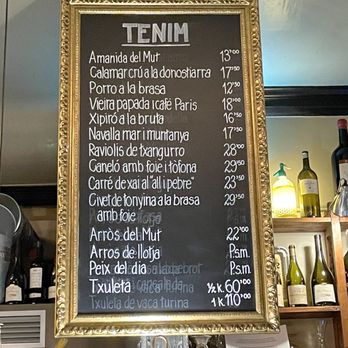 TENIM
Amanida del Mut 13'00
Calamar crú a la donostiarra 17'50
Porro a la brasa 12'50
Vieira papada i café Paris 18'00
Xipiró a la bruta 16'50
Navalla mar i muntanya 17'50
Raviolis de txangurro 28'00
Caneló amb foie i tòfona 29'50
Carré de xai al "all i pebre" 23'50
Civet de tonyina a la brasa 29'50
amb foie
Arròs del Mut 22'00
Arros de llotja P.s.m.
Peix del dia P.s.m.
Txuleta 1/2 k. 60'00
Txuleta de vaca turina 1 k 110'00